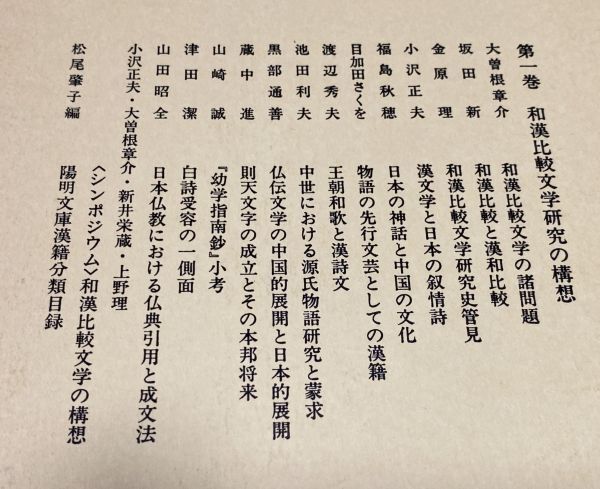 第一巻 和漢比較文学研究の構想
大曽根章介 和漢比較文学の諸問題
坂田新 和漢比較と漢和比較
金原理 和漢比較文学研究史管見
小沢正夫 漢文学と日本の叙情詩
福島秋穂 日本の神話と中国の文化
目加田さくを 物語の先行文芸としての漢籍
渡辺秀夫 王朝和歌と漢詩文
池田利夫 中世における源氏物語研究と蒙求
黒部通善 仏伝文学の中国的展開と日本的展開
蔵中進 則天文字の成立とその本邦将来
山崎誠 『幼学指南鈔』小考
津田潔 白詩受容の一側面
山田昭全 日本仏教における仏典引用と成文法
小沢正夫・大曽根章介・新井栄蔵・上野理
〈シンポジウム〉和漢比較文学の構想
松尾肇子編 陽明文庫漢籍分類目録